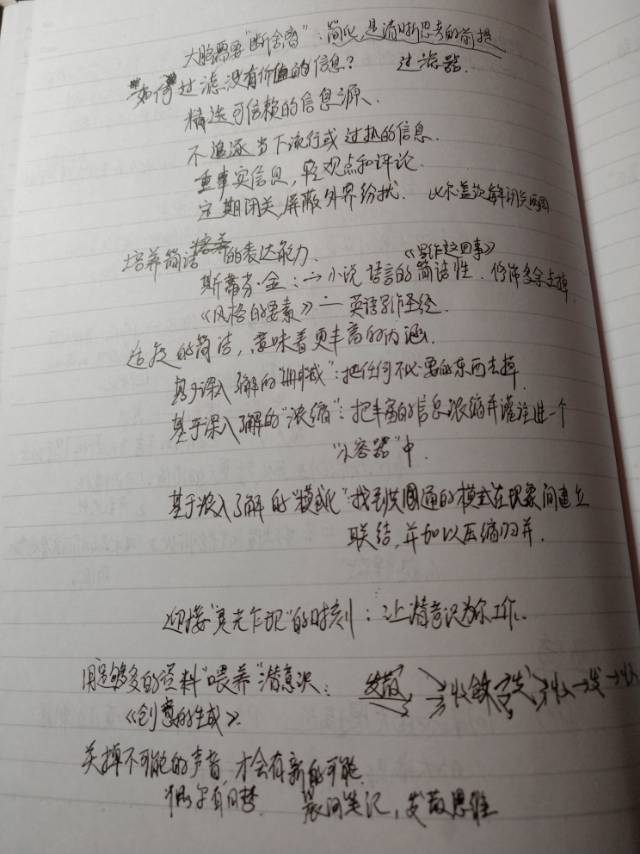 大脑需要“断舍离”：简化，是清晰思考的前提
如何过滤没有价值的信息？ 过滤器
精选可信赖的信息源、
不追逐当下流行或过热的信息.
重事实信息，轻观点和评论.
定期闭关，屏蔽外界纷扰. 比尔盖茨每年闭关两周
培养简洁的表达能力. 《写作这回事》
斯蒂芬·金：→小说语言的简洁性. 修饰多余去掉
《风格的要素》— 英语写作圣经.
适度的简洁，意味着更丰富的内涵.
基于深入了解的“删减”：把任何不必要的东西去掉
基于深入了解的“浓缩”：把丰富的信息浓缩并灌注进一个
“小容器”中.
基于深入了解的“模式化”找到共同通的模式在现象间建立
联结，并加以压缩归并.
迎接“灵光乍现”的时刻：让潜意识为你工作.
用足够多的资料“喂养”潜意识： 发散 收敛
《创意的生成》.
关掉不可能的声音，才会有新的可能
偶尔有白日梦. 晨间笔记，发散思维